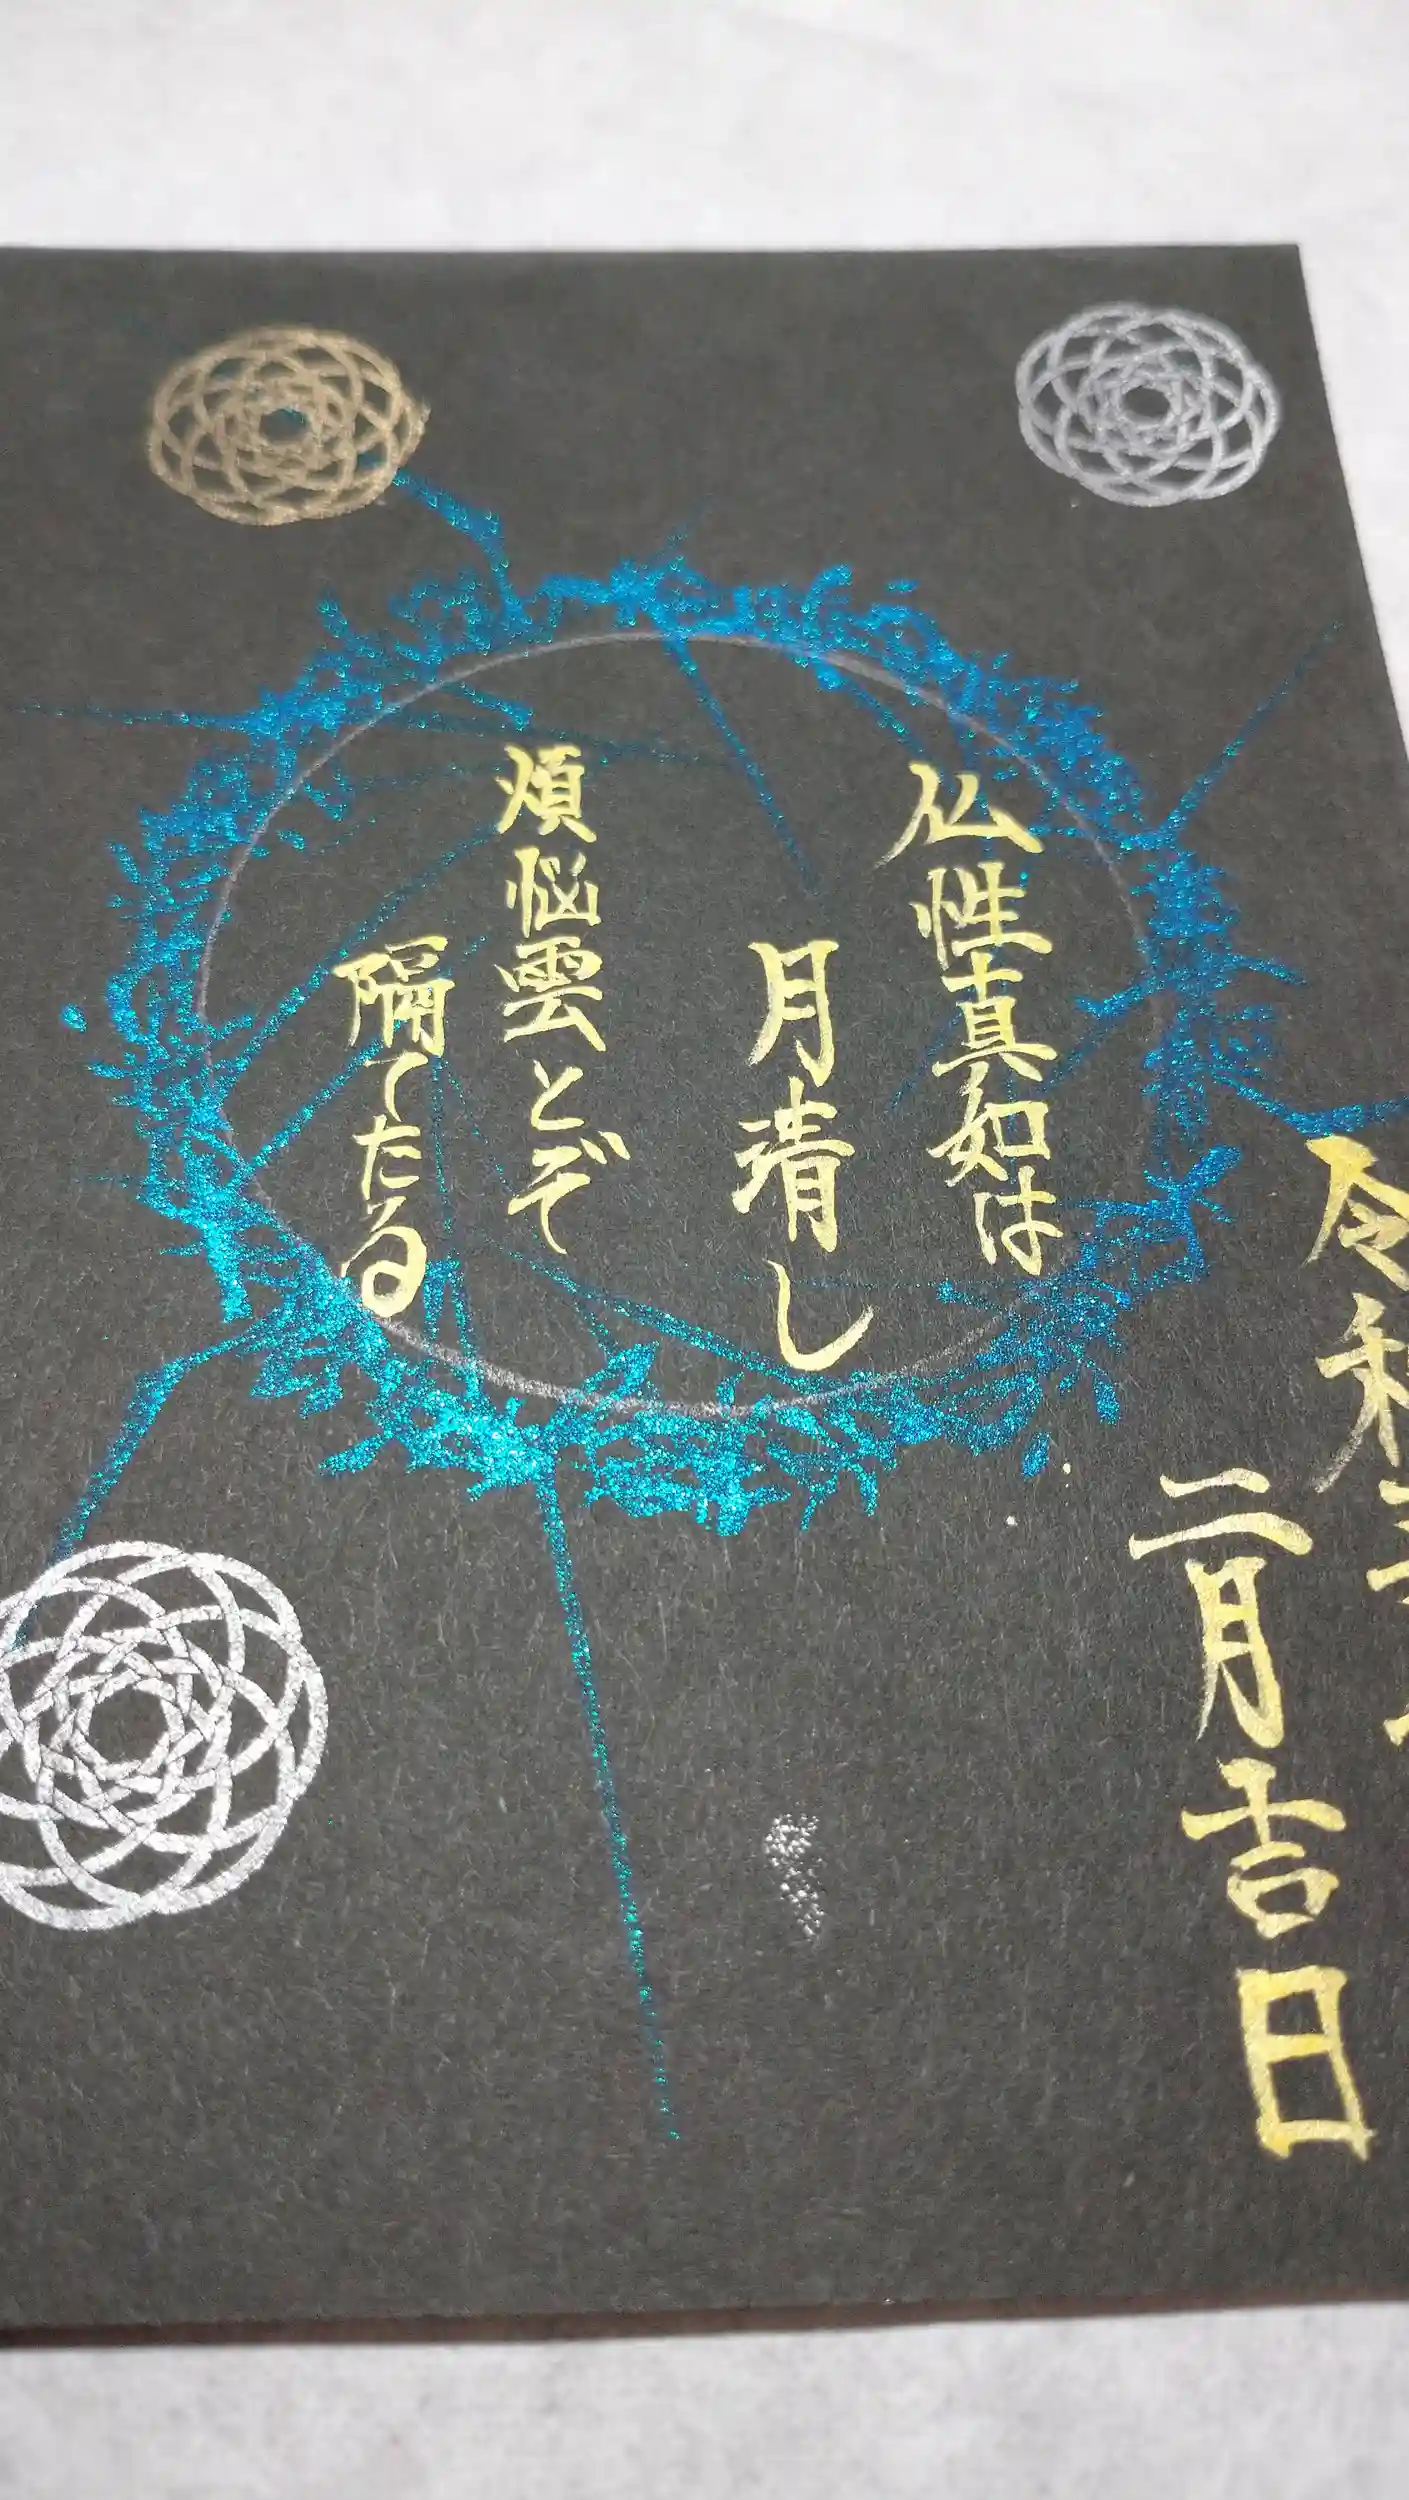 仏性真如は
月清し
煩悩雲とぞ
隔てたる
令和
二月吉日